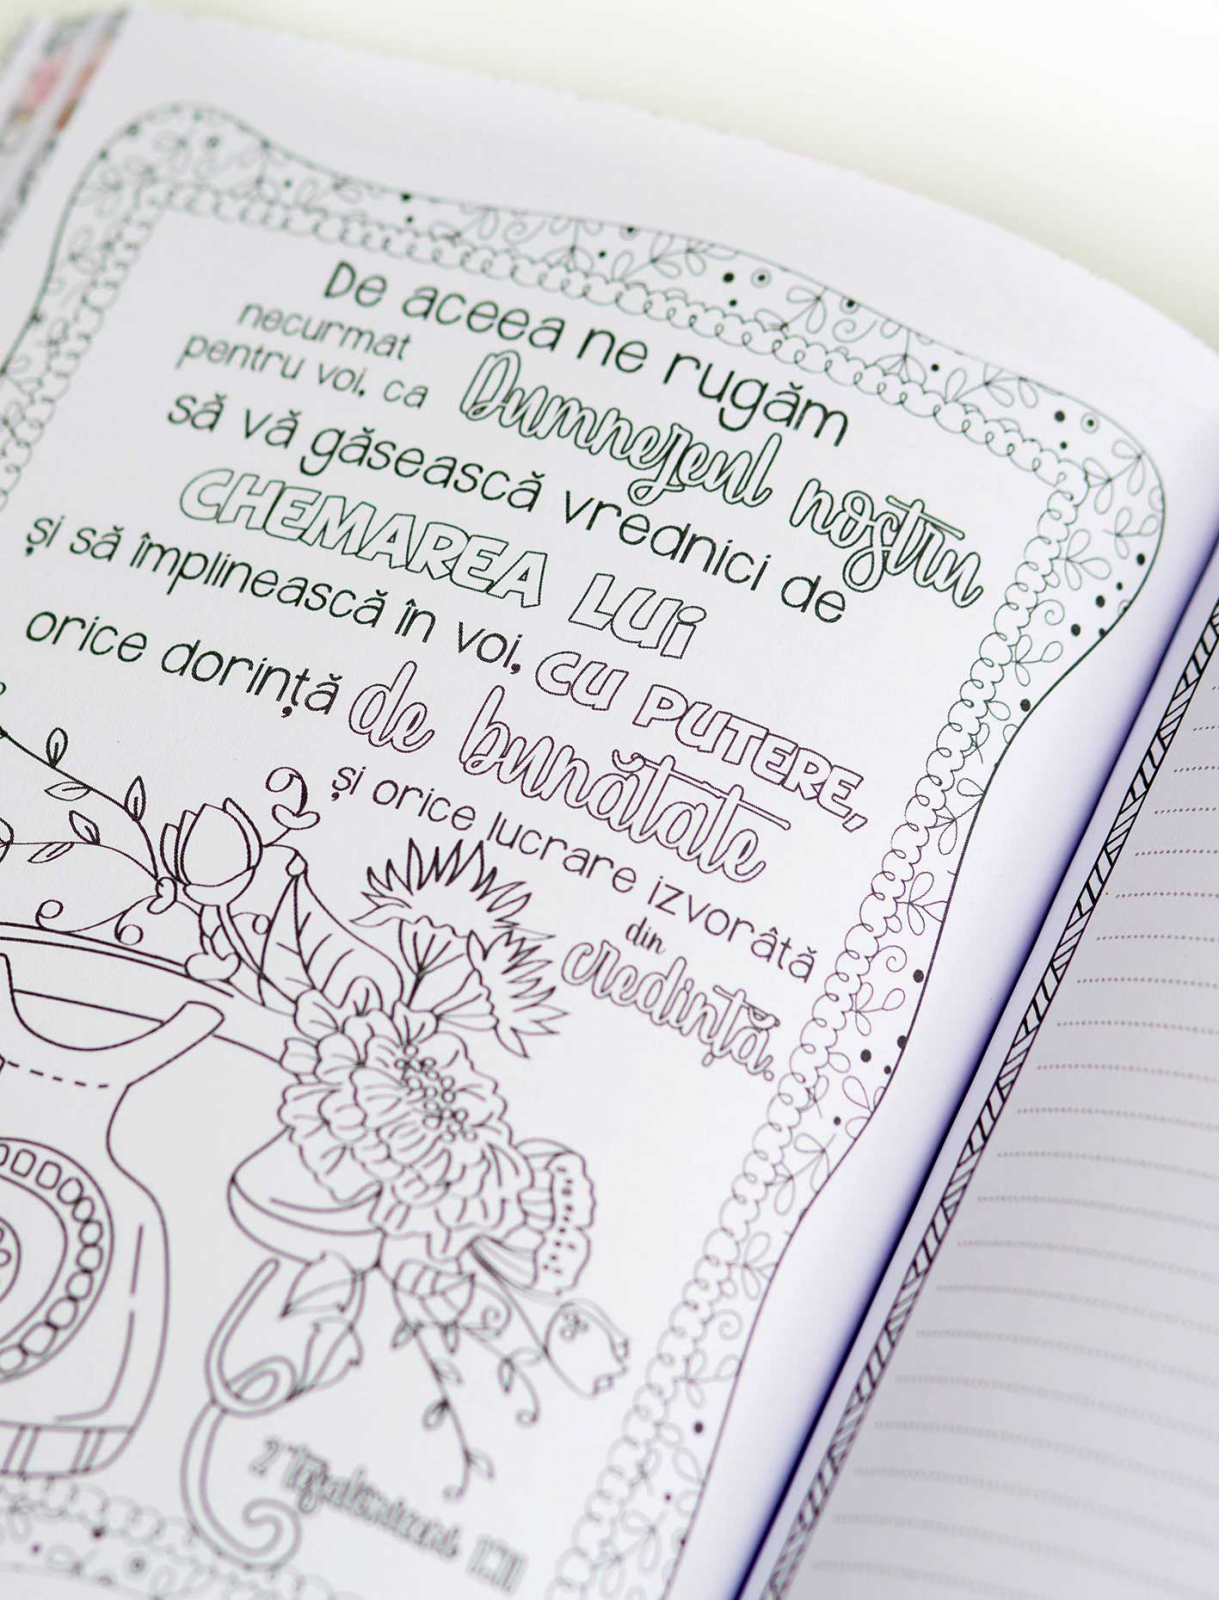 De aceea ne rugăm
necurmat
pentru voi, ca Dumnezeul nostru
să vă găsească vrednici de
CHEMAREA LUI
și să împlinească în voi, CU PUTERE,
orice dorință de bunătate
și orice lucrare izvorâtă
din
credință.
2 Tesaloniceni 1:11